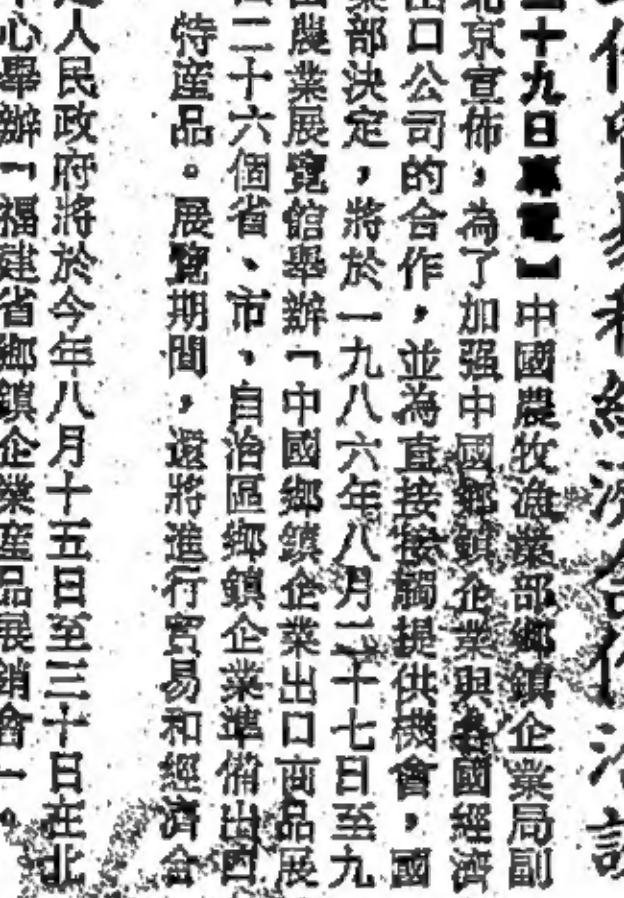 作貿易和經濟合作洽談
十九日專電】中國農牧漁業部鄉鎮企業局副
北京宣佈，為了加强中國鄉鎮企業與各國經濟
出口公司的合作，並為直接接觸提供機會，國
業部決定，將於一九八六年八月二十七日至九
國農業展覽館舉辦「中國鄉鎮企業出口商品展
二十六個省、市、自治區鄉鎮企業準備出口
特產品。展覽期間，還將進行貿易和經濟合
人民政府將於今年八月十五日至三十日在北
中心舉辦「福建省鄉鎮企業產品展銷會」。